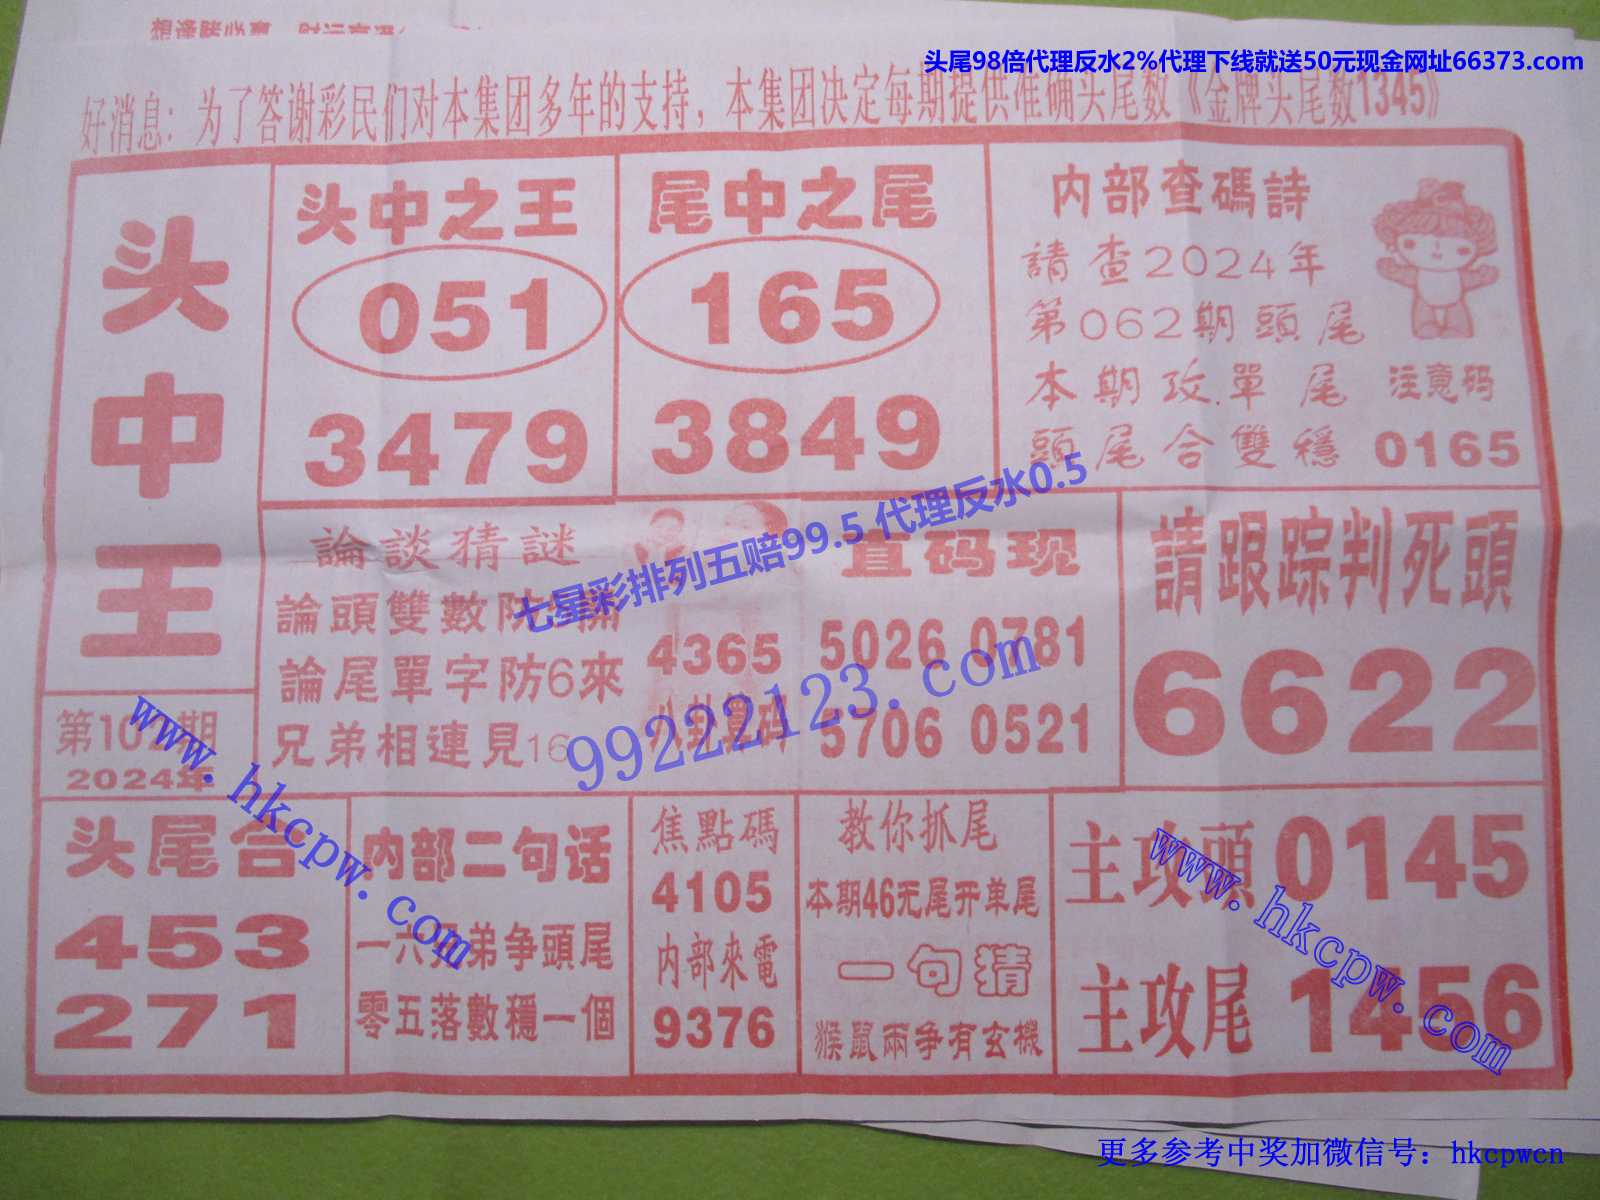 头尾98倍代理反水2%代理下线就送50元现金网址66373.com
好消息：为了答谢彩民们对本集团多年的支持，本集团决定每期提供准确头尾数《金牌头尾数1345》
头中王
第10 期
2024年
头中之王
051
3479
尾中之尾
165
3849
内部查碼詩
請查2024年
第062期頭尾
本期攻.單尾
頭尾合雙穩
注意码
0165
論談猜謎
論頭雙數防
論尾單字防6來
兄弟相連見16
4365
八卦算码
直码现
5026 0781
5706 0521
請跟踪判死頭
6622
七星彩排列五赔99.5 代理反水0.5
99222123.com
www.hkcpw.com
头尾合
453
271
内部二句话
一六兄弟争頭尾
零五落數穩一個
焦點碼
4105
内部來電
9376
教你抓尾
本期46无尾开单尾
一句猜
猴鼠兩争有玄機
主攻頭0145
主攻尾1456
www.hkcpw.com
更多参考中奖加微信号：hkcpwcn